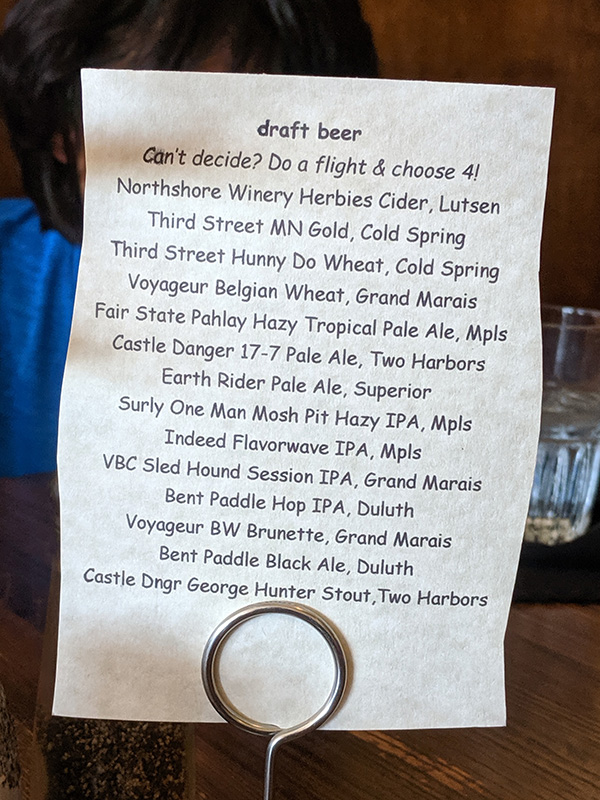 draft beer
Can't decide? Do a flight & choose 4!
Northshore Winery Herbies Cider, Lutsen
Third Street MN Gold, Cold Spring
Third Street Hunny Do Wheat, Cold Spring
Voyageur Belgian Wheat, Grand Marais
Fair State Pahlay Hazy Tropical Pale Ale, Mpls
Castle Danger 17-7 Pale Ale, Two Harbors
Earth Rider Pale Ale, Superior
Surly One Man Mosh Pit Hazy IPA, Mpls
Indeed Flavorwave IPA, Mpls
VBC Sled Hound Session IPA, Grand Marais
Bent Paddle Hop IPA, Duluth
Voyageur BW Brunette, Grand Marais
Bent Paddle Black Ale, Duluth
Castle Dngr George Hunter Stout,Two Harbors